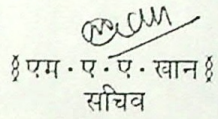 एम · ए · ए · खान
सचिव